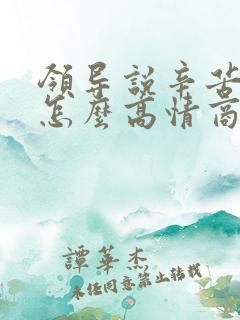 領导說辛苦
怎麼高情商
譚華杰
未任同意禁止转載